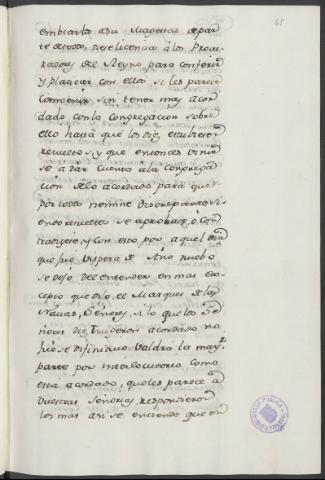 65
embiarla a su Magestad de par
te de todos, diese licencia á los Procu
radores del Reyno para conferir
y platicar con ellos si les parece
convenir, sin tener mas acor
dado con la Congregacion sobre
ello hasta que los dies, estubiesen
resueltos, y que entonces vinie
se a dar cuenta á la Congrega
cion de lo acordado para que
por todos nemine discrepante si
endo resuelto se aprobase, ó con
tradigese, y con esto, por aquel dia
que fue vispera de Año nuebo
se dejó de entender en mas ex
cepto que dijo, el Marques de las
Navas, Señores, si lo que los Se
ñores diez tuvieron acordado no
fuese difinitivo valdrá la mayr.
parte por interlocutorio como
está acordado, que les parece á
vuestras Señorias, respondieron
los mas asi se entiende que en